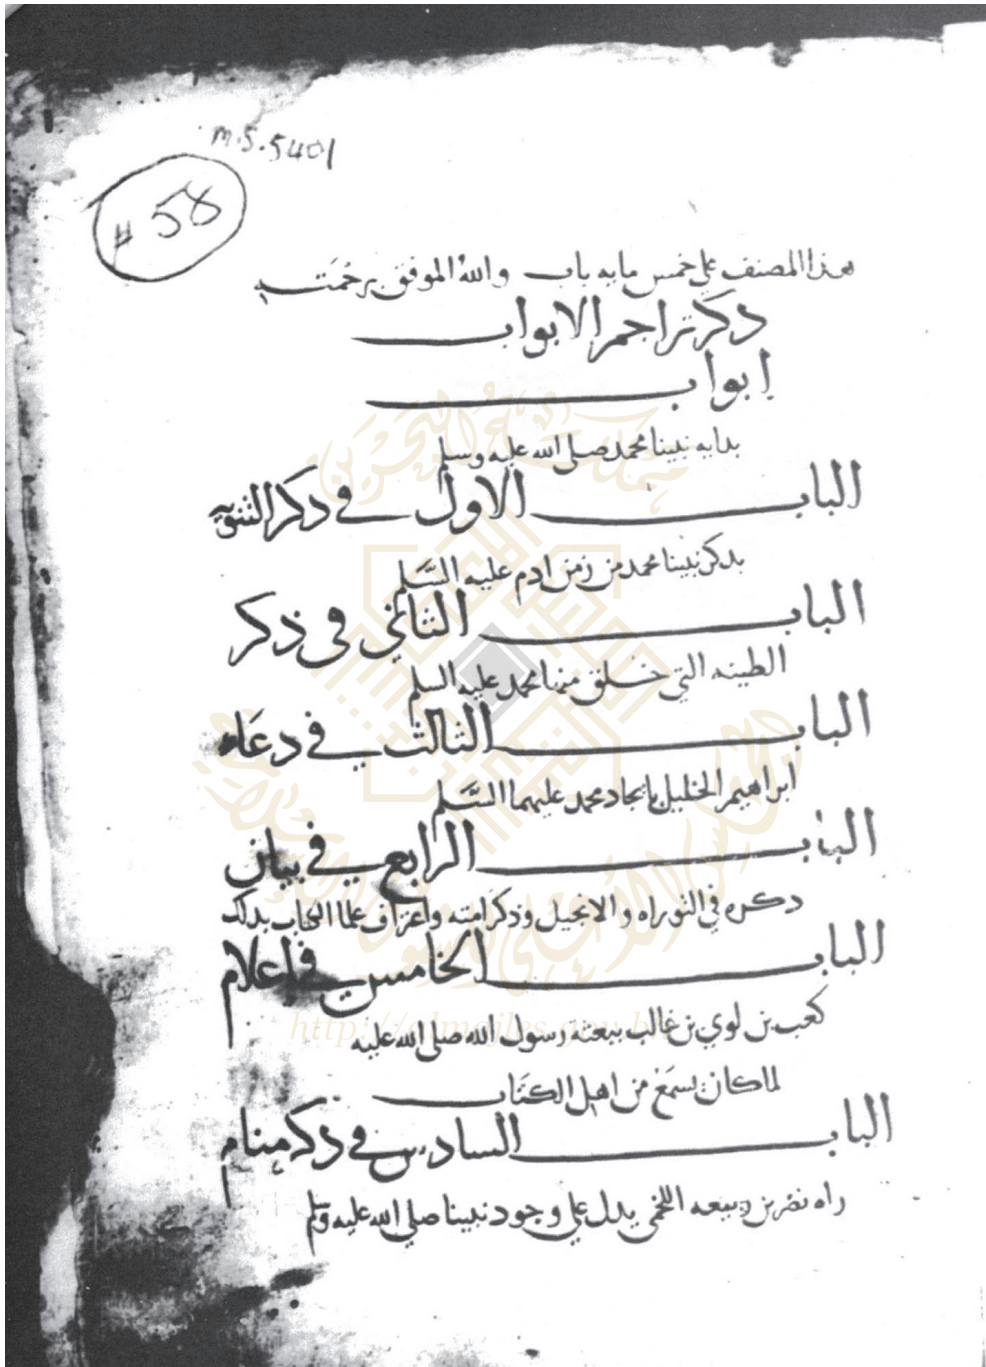 m.s.5401
# 58
هذا المصنف علي خمس مايه باب والله الموفق برحمته
ذكر تراجم الابواب
ابواب
بدايه نبينا محمد صلى الله عليه وسلم
الباب الاول في ذكر التنويه
بذكر نبينا محمد من زمن ادم عليه السلم
الباب الثاني في ذكر
الطينه التي خلق منها محمد عليه السلم
الباب الثالث في دعاء
ابراهيم الخليل بايجاد محمد عليهما السلم
الباب الرابع في بيان
ذكره في التوراه والانجيل وذكر امته واعتراف علما الكتاب بذلك
الباب الخامس في اعلام
كعب بن لوي بن غالب ببعثة رسول الله صلى الله عليه
لما كان يسمع من اهل الكتاب
الباب السادس في ذكر منام
راه نصر بن ربيعه اللخمي يدل علي وجود نبينا صلي الله عليه وسلم
http://